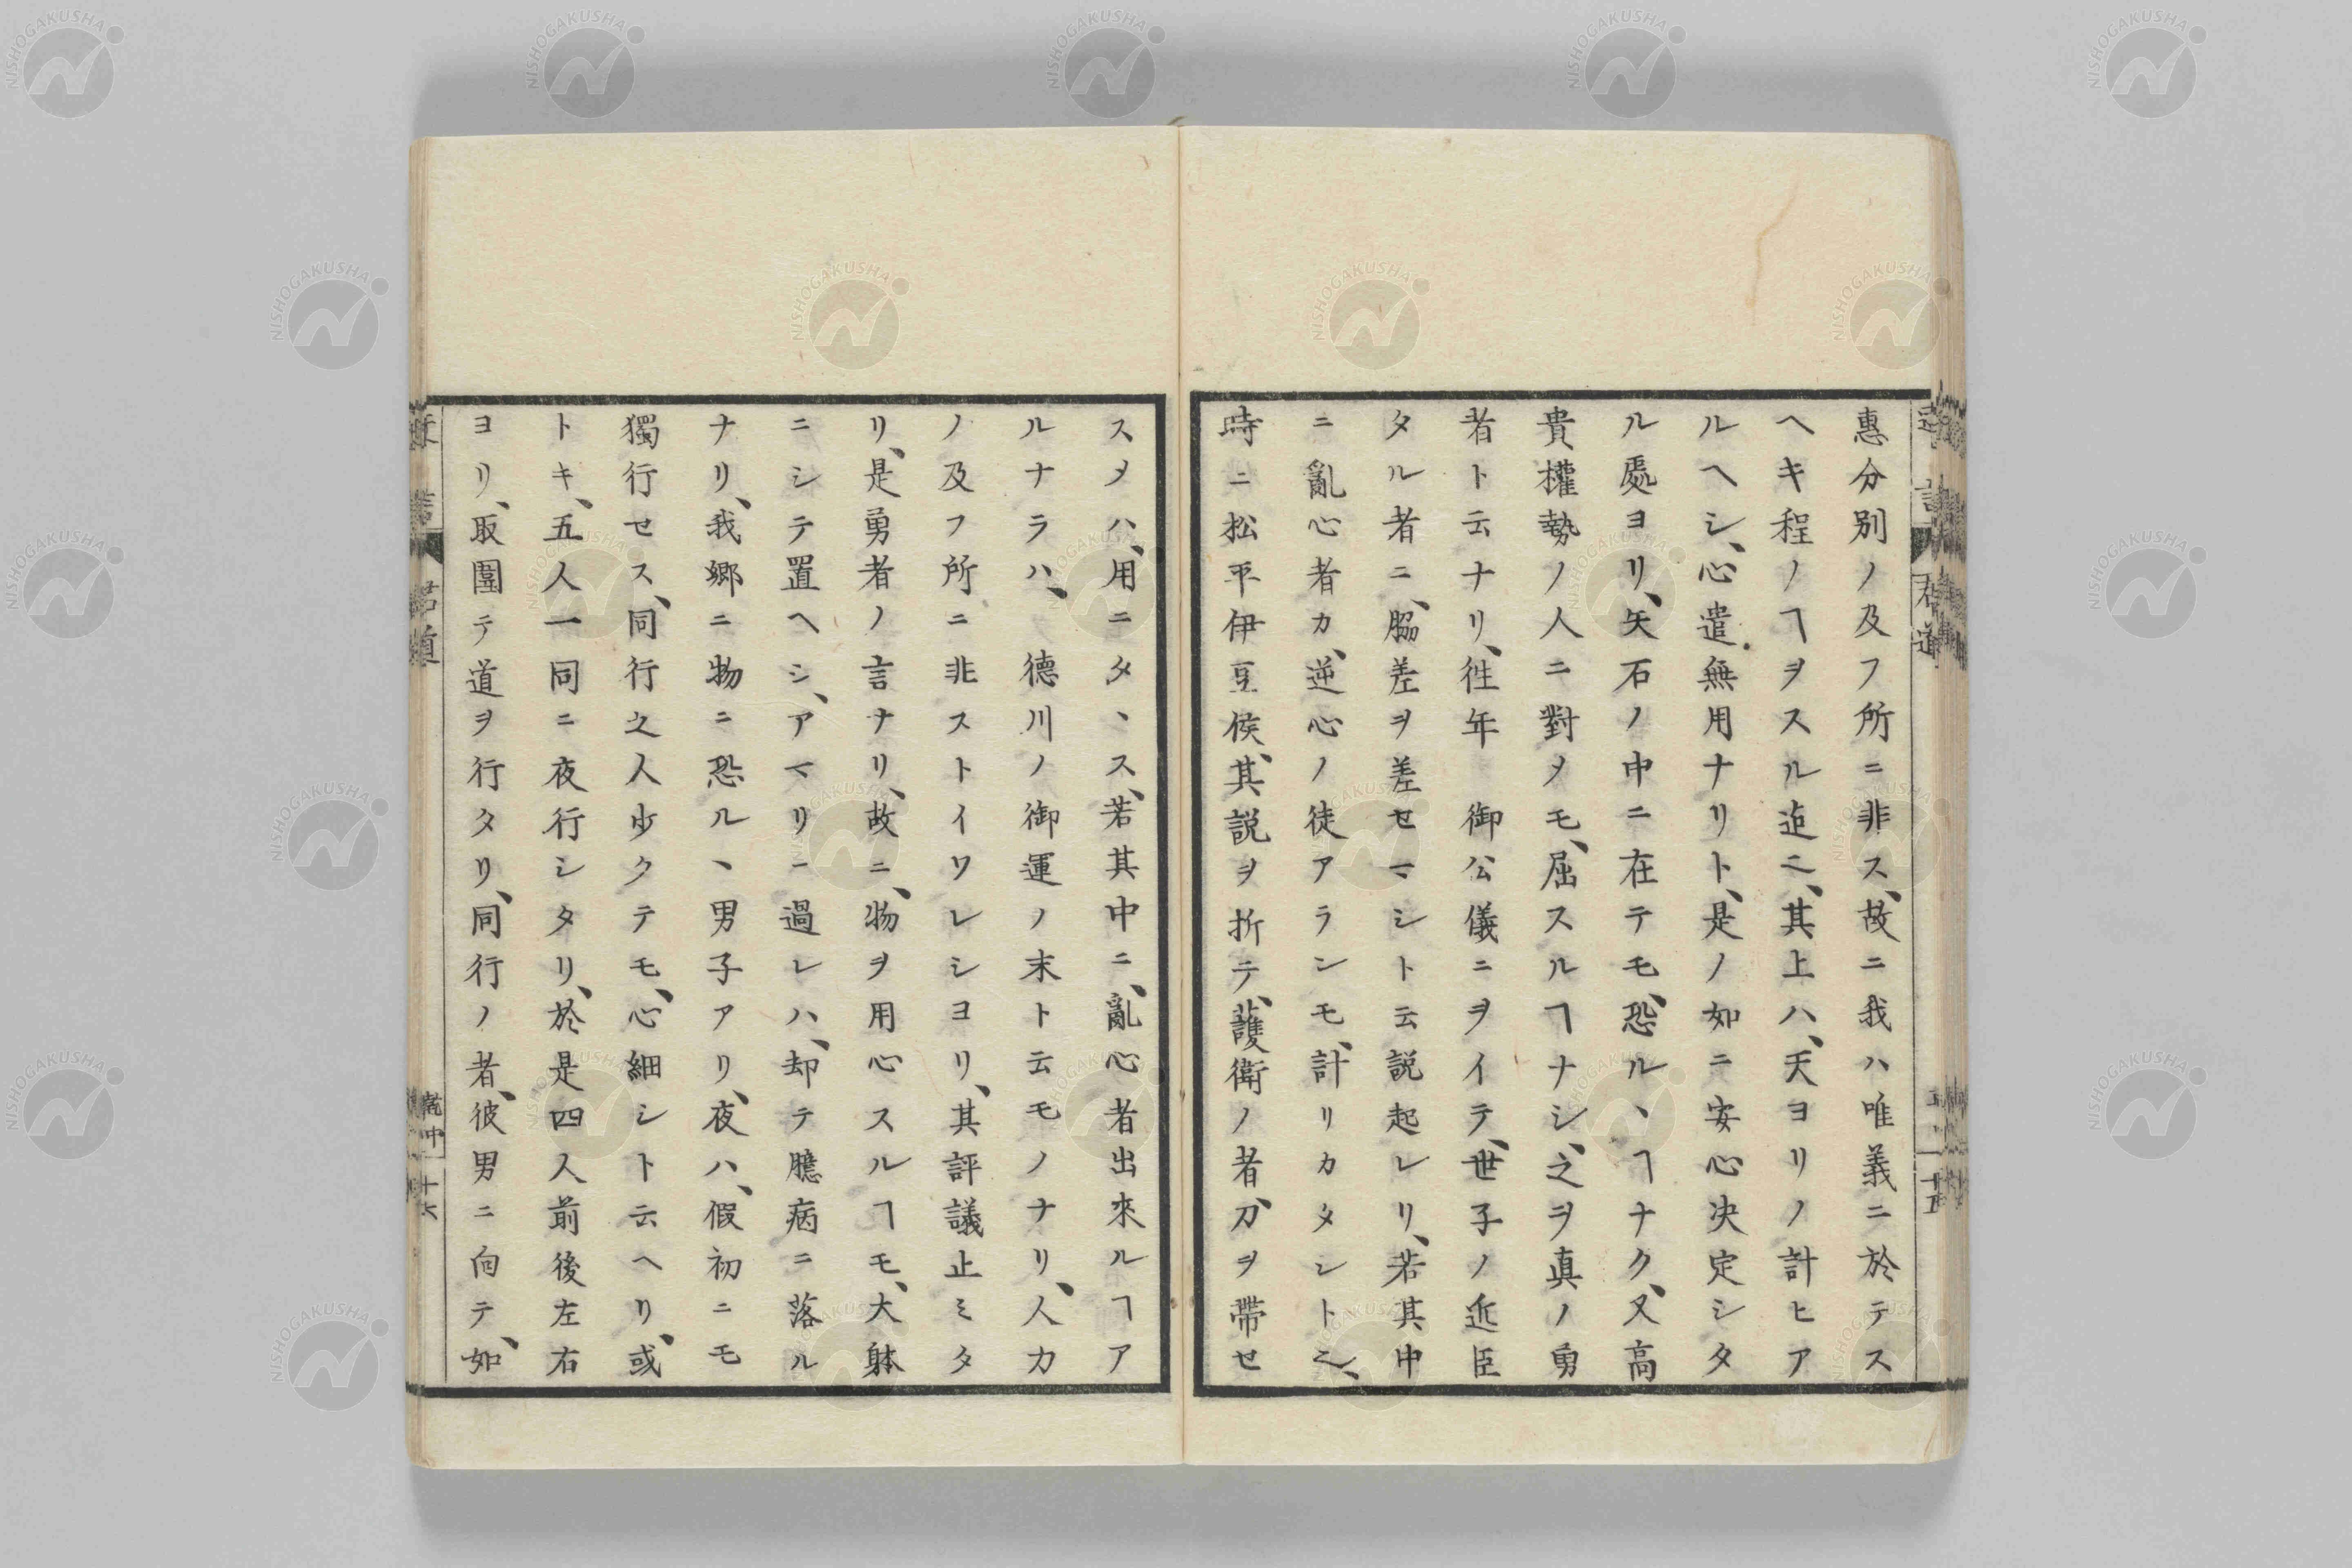 惠分別ノ及フ所ニ非ス、故ニ我ハ唯義ニ於テス
ヘキ程ノヿヲスル迠ニ、其上ハ、天ヨリノ計ヒア
ルヘシ、心遣無用ナリト、是ノ如ニ安心決定シタ
ル處ヨリ、矢石ノ中ニ在テモ、恐ルヽヿナク、又高
貴權勢ノ人ニ對メモ、屈スルヿナシ、之ヲ真ノ勇
者ト云ナリ、徃年 御公儀ニヲイテ、世子ノ近臣
タル者ニ、脇差ヲ差セマシト云説起レリ、若其中
ニ亂心者カ、逆心ノ徒アランモ、計リカタシトミ、
時ニ松平伊豆侯、其説ヲ折テ、護衛ノ者、刀ヲ帶セ
スメハ、用ニタヽス、若其中ニ、亂心者出來ルヿア
ルナラハ、 德川ノ御運ノ末ト云モノナリ、人力
ノ及フ所ニ非ストイワレシヨリ、其評議止ミタ
リ、是勇者ノ言ナリ、故ニ、物ヲ用心スルヿモ、大躰
ニシテ置ヘシ、アマリニ過レハ、却テ臆病ニ落ル
ナリ、我郷ニ物ニ恐ルヽ男子アリ、夜ハ、假初ニモ
獨行セス、同行之人少クテモ、心細シト云ヘリ、或
トキ、五人一同ニ夜行シタリ、於是四人前後左右
ヨリ、取圍テ道ヲ行タリ、同行ノ者、彼男ニ向テ、如
君道
十六
NISHOGAKUSHA